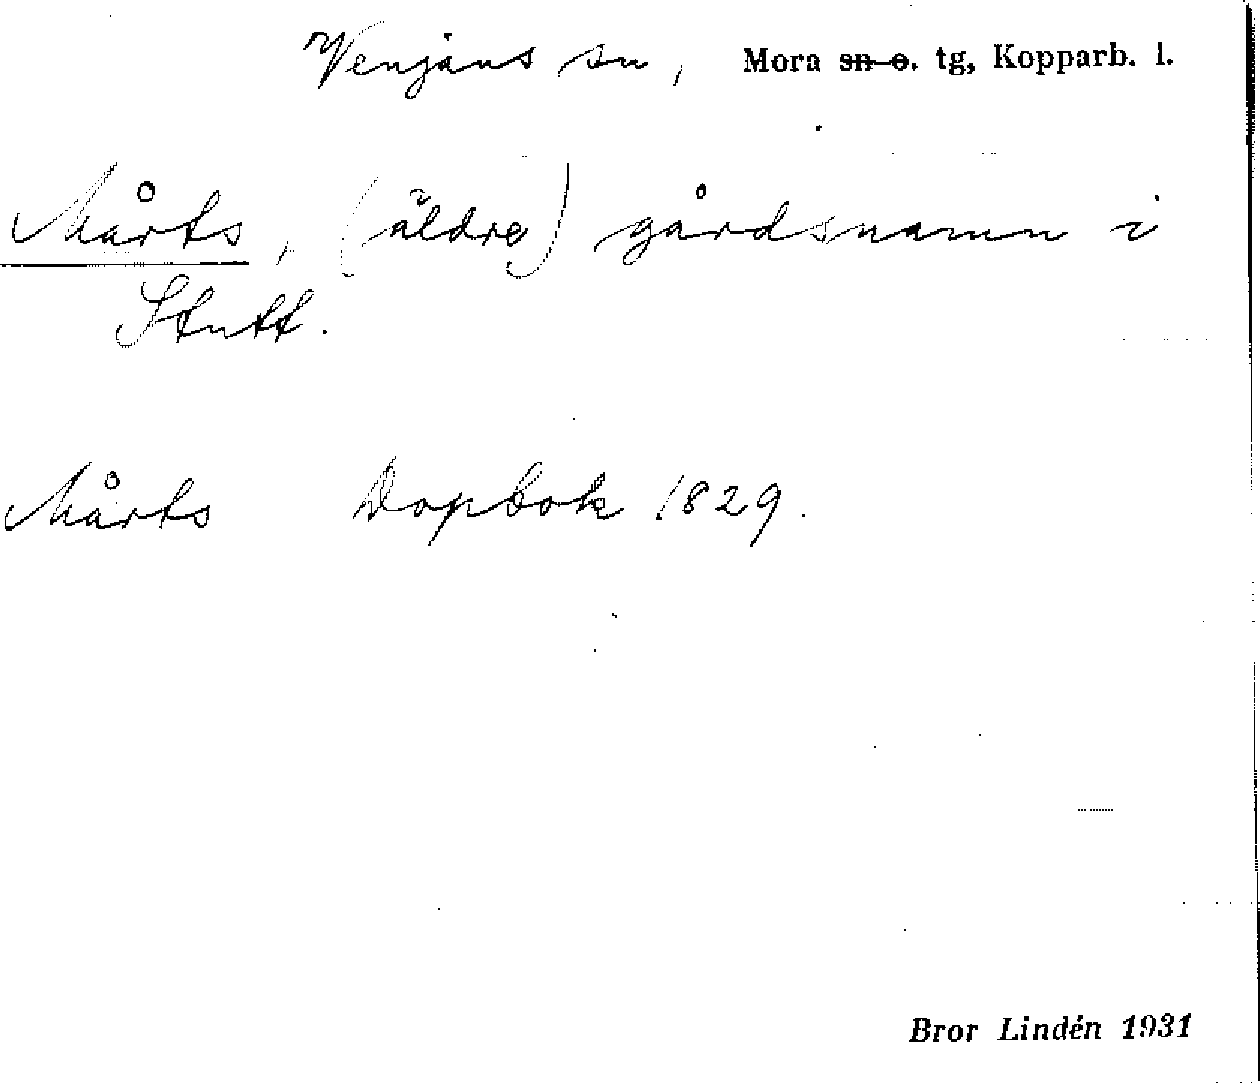 Venjans sn, Mora sn o. tg, Kopparb. l.
Mårts, (äldre) gårdsnamn i
Stutt.
Mårts Dopbok 1829.
Bror Lindén 1931